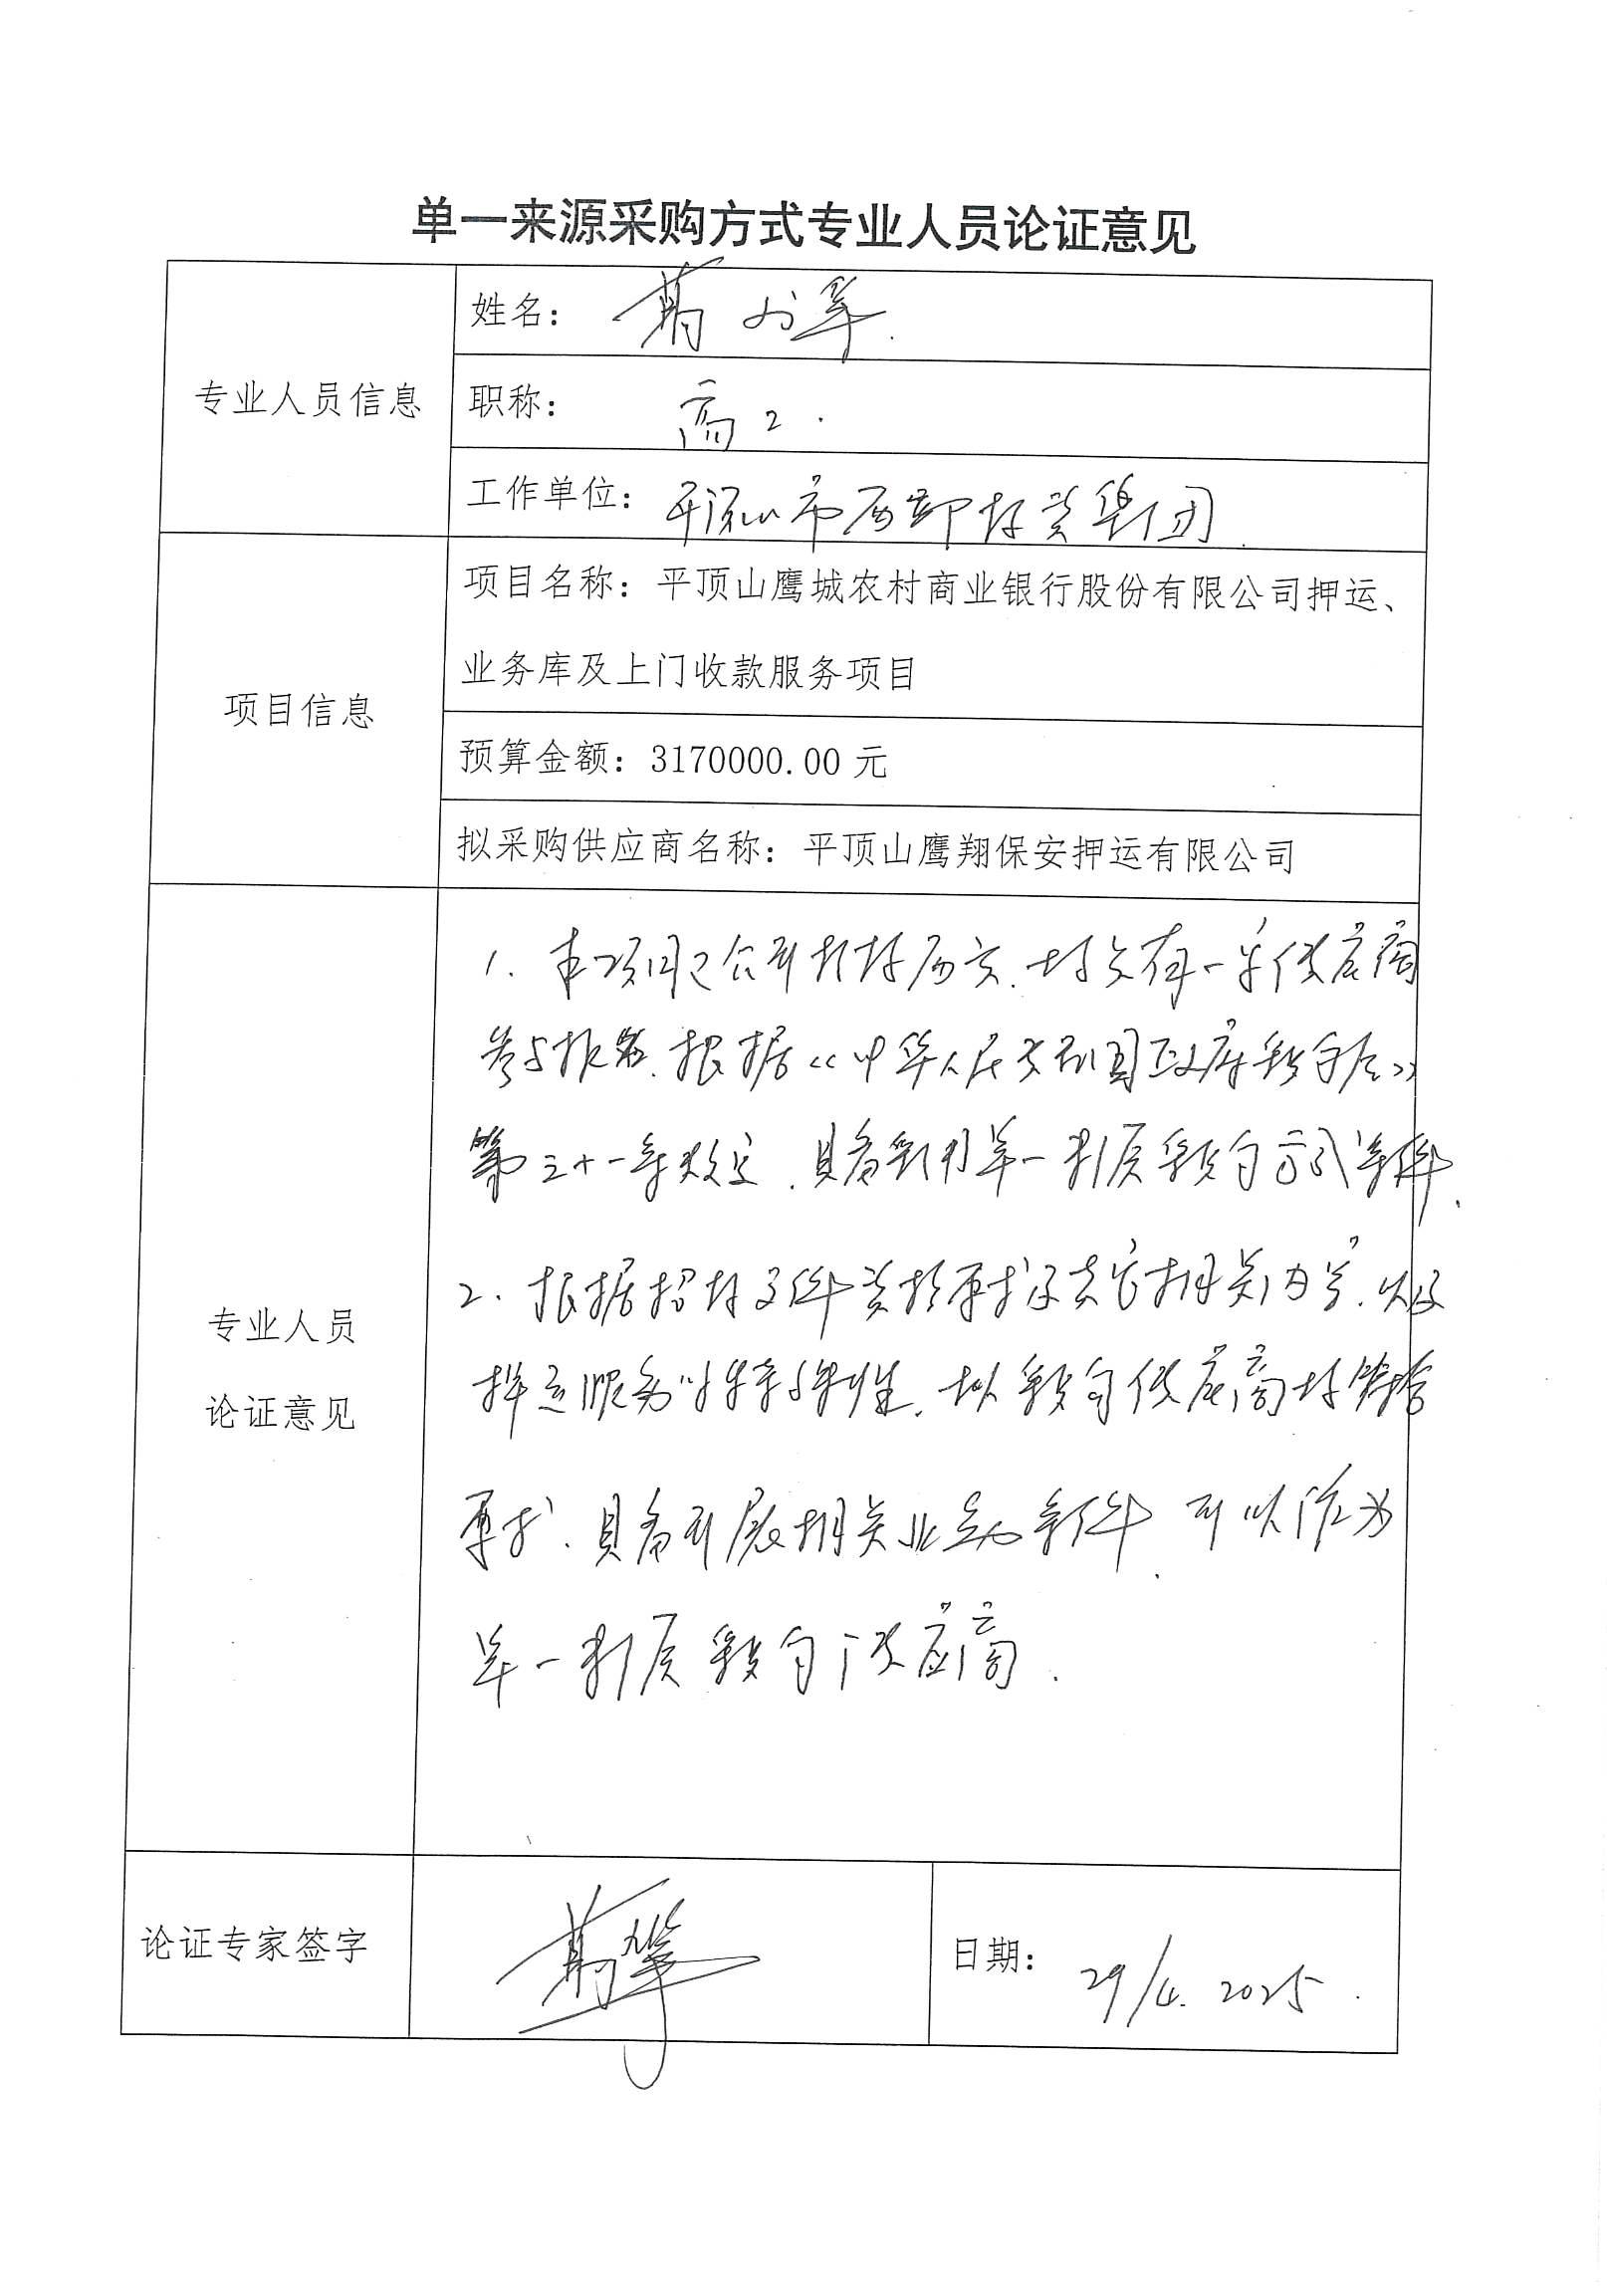 单一来源采购方式专业人员论证意见
专业人员信息
姓名：
职称：高工.
工作单位：平顶山市西部投资集团
项目信息
项目名称：平顶山鹰城农村商业银行股份有限公司押运、
业务库及上门收款服务项目
预算金额：3170000.00 元
拟采购供应商名称：平顶山鹰翔保安押运有限公司
专业人员
论证意见
1. 本项目已公开招标两次，均只有一家供应商
参与报名，根据《中华人民共和国政府采购法》
第三十一条规定，具备采用单一来源采购方式条件.
2. 根据招标文件资格要求及其它相关内容，以及
押运服务的特殊性，拟采购供应商均符合
要求，具备开展相关业务条件，可以作为
单一来源采购供应商.
论证专家签字
日期：29/4. 2025.